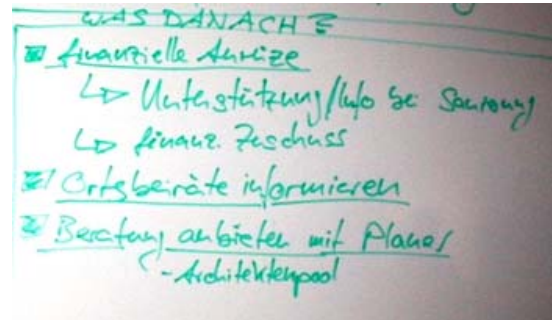 WAS DANACH?
finanzielle Anreize
↳ Unterstützung/Info bei Sanierung
↳ finanz. Zuschuss
Ortsbeiräte informieren
Beratung anbieten mit Planer
- Architektenpool